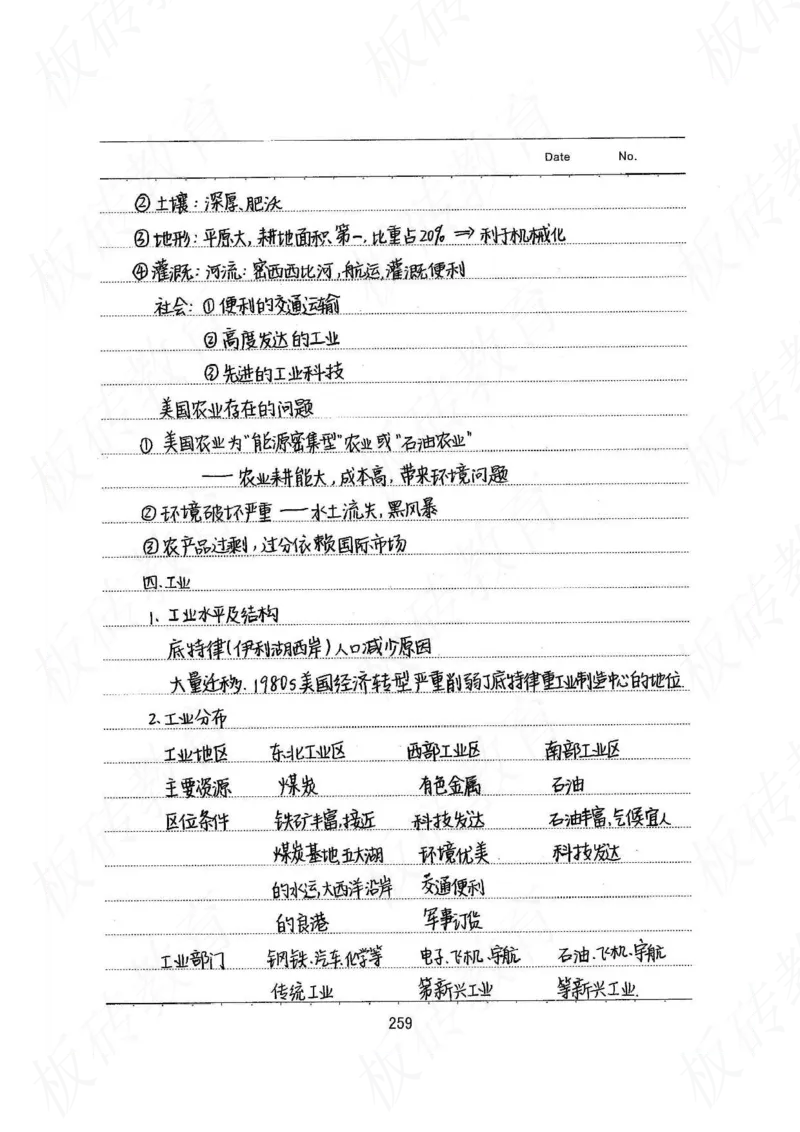 Date No.
②土壤：深厚、肥沃
③地形：平原大，耕地面积第一，比重占20% ⇒ 利于机械化
④灌溉：河流：密西西比河，航运，灌溉便利
社会：①便利的交通运输
②高度发达的工业
③先进的工业科技
美国农业存在的问题
① 美国农业为“能源密集型”农业或“石油农业”
—— 农业耕能大，成本高，带来环境问题
②环境破坏严重 —— 水土流失，黑风暴
③农产品过剩，过分依赖国际市场
四.工业
1. 工业水平及结构
底特律(伊利湖西岸)人口减少原因
大量迁移. 1980s美国经济转型严重削弱了底特律重工业制造中心的地位
2.工业分布
工业地区 东北工业区 西部工业区 南部工业区
主要资源 煤炭 有色金属 石油
区位条件 铁矿丰富,接近 科技发达 石油丰富,气候宜人
煤炭基地,五大湖 环境优美 科技发达
的水运,大西洋沿岸 交通便利
的良港 军事订货
工业部门 钢铁、汽车、化学等 电子、飞机、宇航 石油、飞机、宇航
传统工业 等新兴工业 等新兴工业.
259
板砖教育